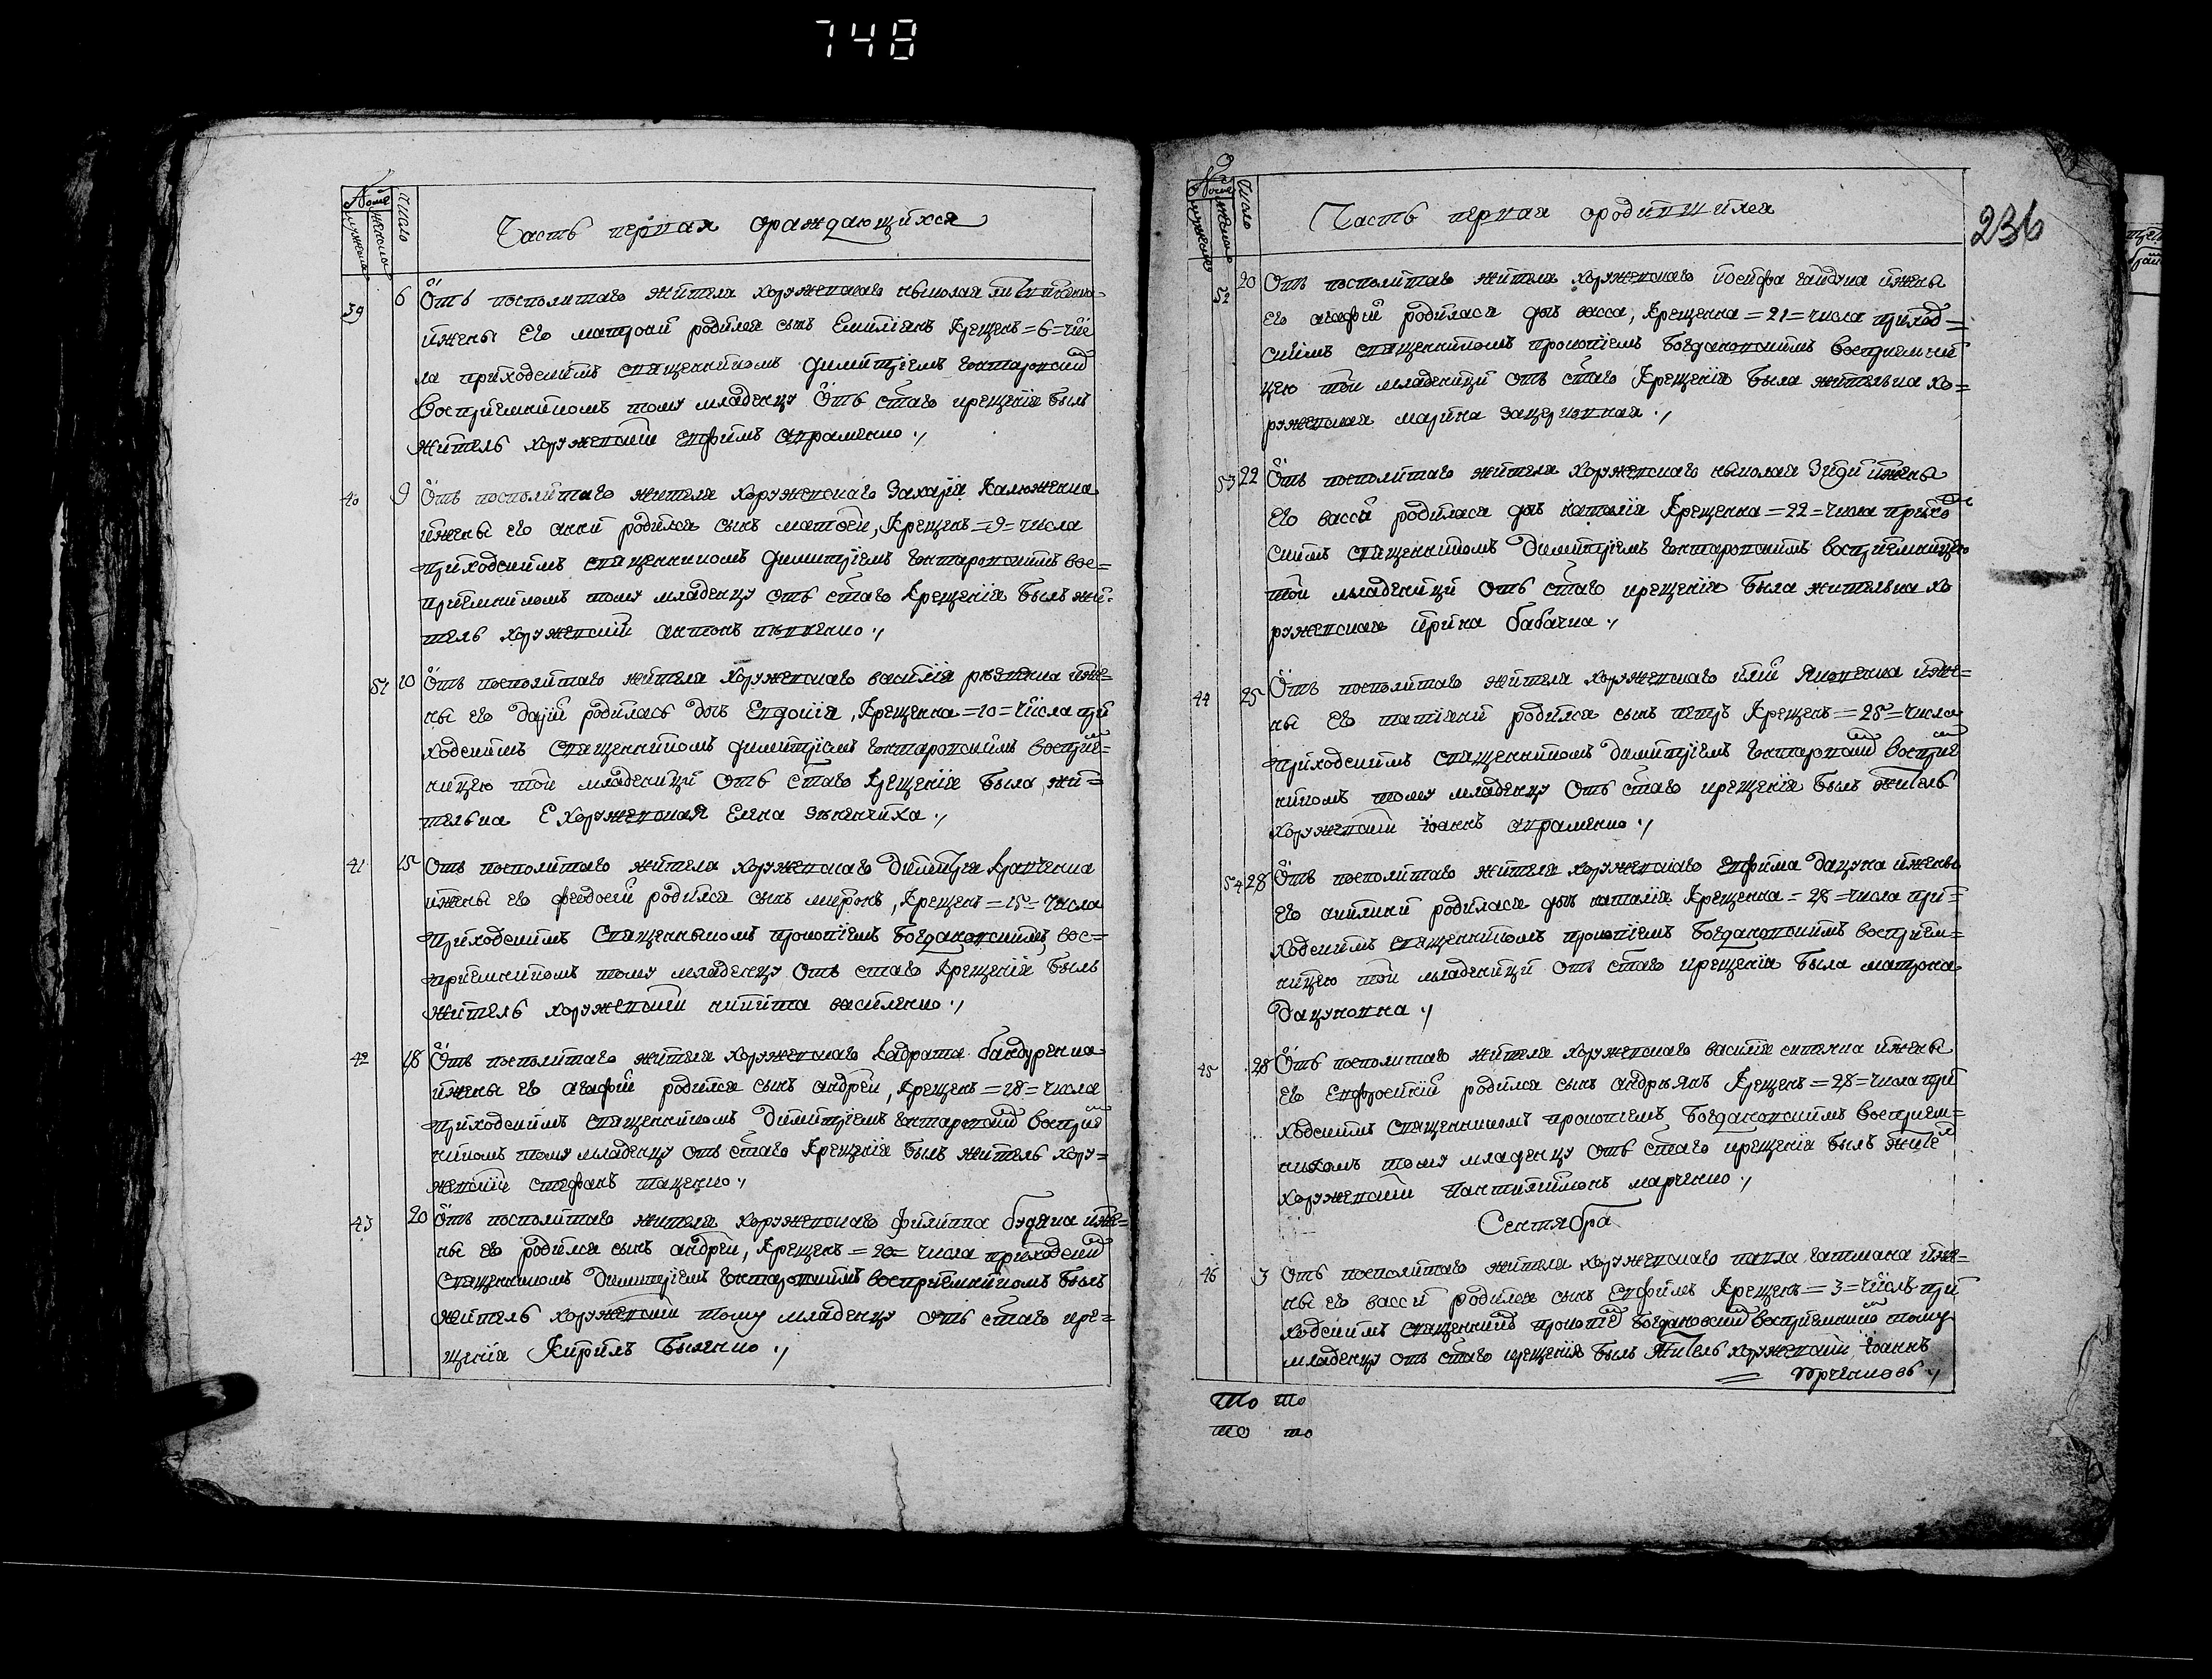 748
Часть первая ораждающихся
Число
39 6 Отъ посполитаго жителя хоружевскаго николая
ижены Его матрони родился сынъ Емилиянъ Крещенъ =6= чис
ла приходскимъ священникомъ Димитриемъ Гонтаровским
Восприемникомъ тому младенцу Отъ стаго крещения былъ
житель хоружевский евфимъ авраменко ./
40 9 Отъ посполитаго жителя хоружевскаго Захария Калюженка
ижены его анни родился сынъ матфей, Крещенъ =9= числа
приходскимъ священникомъ Димитриемъ Гонтаровскимъ вос=
приемникомъ тому младенцу отъ стаго Крещения былъ жи=
тель хоружевский антонъ ./
51 10 Отъ посполитаго жителя хоружевскаго василия ижe=
ны его дарии родилась дочь Евдокия, Крещенна =10= числа при
ходскимъ Священникомъ Димитриемъ Гонтаровскимъ восприем=
ницею той младеници Отъ стаго Крещения была жи=
телька Е хоружевская Елена ./
41 15 Отъ посполитаго жителя хоружевскаго Димитрия Кравченка
ижены его феодосии родился сынъ миронъ, Крещенъ =15= Числа
приходскимъ Священныкомъ прокопиемъ богдановскимъ, вос=
приемникомъ тому младенцу Отъ стаго Крещения былъ
житель хоружевский никита василенко ./
42 18 Отъ посполитаго жителя хоружевскаго Кадрата бандуренка
ижены его агафии родился сынъ андрей, Крещенъ =18= числа
приходскимъ священникомъ Димитриемъ Гонтаровским восприем
никомъ тому младенцу отъ стаго Крещения былъ житель хору=
жевский стефанъ таценко ./
43 20 Отъ посполитаго жителя хоружевскаго филиппа будяка иже=
ны его родился сынъ андрей, Крещенъ =20= числа приходским
Священникомъ Димитриемъ Гонтаровскимъ восприемникомъ былъ
житель хоружевский тому младенцу отъ стаго кре=
щения Кирилъ Быченко ./
Часть первая ородившихся
236
Число
52 20 Отъ посполитаго жителя хоружевскаго йосифа гайдука ижены
его агафии родилася дочь васса, Крещенна =21= числа приход=
скимъ священникомъ прокопиемъ богдановскимъ восприемни
цею той младеници отъ стаго Крещения была жителька хо=
ружевская марина ./
53 22 Отъ посполитаго жителя хоружевскаго николая ижены
Его васси родилася дочь наталия Крещенна =22= числа приход
скимъ священникомъ Димитриемъ Гонтаровскимъ восприемницею
той младеници отъ стаго крещения была жителька хо
ружевская ирина бабачка ./
44 25 Отъ посполитаго жителя хоружевскаго илии Яковенка иже=
ны Его татияни родился сынъ петръ Крещенъ =25= числа
приходскимъ священникомъ Димитриемъ Гонтаровским восприем
никомъ тому младенцу Отъ стаго крещения былъ житель
хоружевский иоаннъ авраменко ./
54 28 Отъ посполитаго жителя хоружевскаго евфима дацуна ижены
его акилини родилася дочь наталия Крещенна =28= числа при=
ходскимъ священникомъ прокопиемъ богдановскимъ восприем=
ницею той младеници отъ стаго крещения была матрона
дацуновна ./
45 28 Отъ посполитаго жителя хоружевскаго василия ижены
его Евфросинии родился сынъ андрьянъ Крещенъ =28= числа при
ходскимъ Священникомъ прокопиемъ богдановскимъ восприем=
никомъ тому младенцу отъ стаго крещения былъ жител
хоружевский Пантилимонъ марченко ./
Сентября
46 3 Отъ посполитаго жителя хоружевскаго павла гатмана иже=
ны его васси родился сынъ Евфимъ Крещенъ =3= числъ при
ходскимъ священникомъ прокопием богдановским восприемнико тому
младенцу отъ стаго крещения былъ житель хоружевский иоаннъ
./
то то
то то